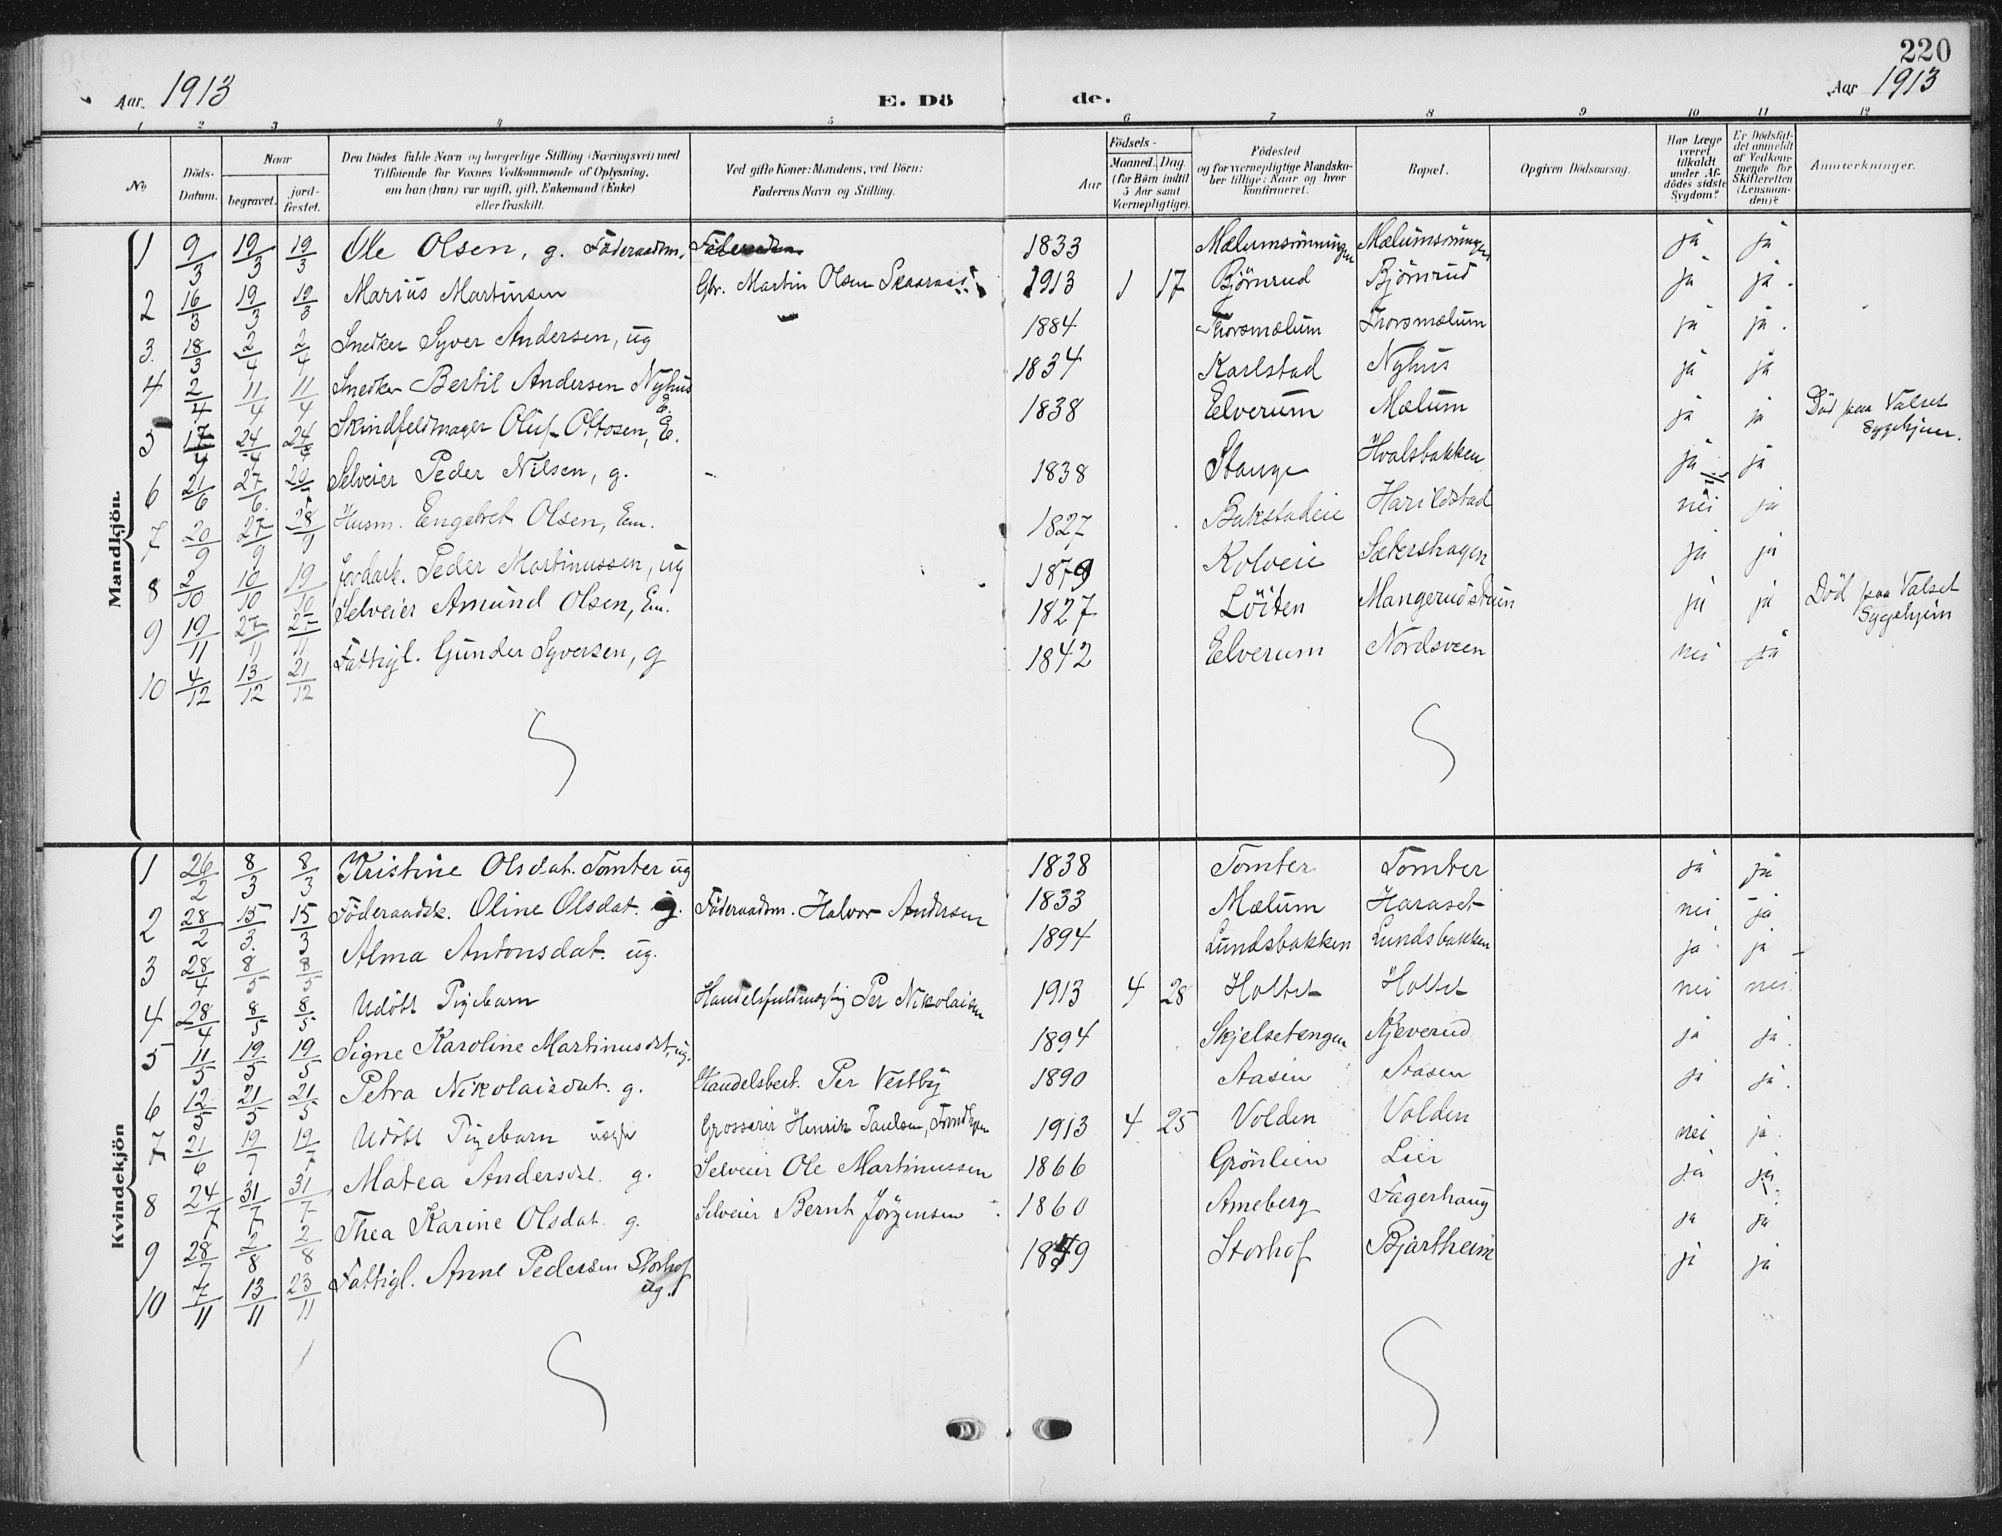 220
Aar 1913 E. Döde. Aar 1913
1 2 3 4 5 6 7 8 9 10 11 12
No Döds-Datum. Naar begravet. jord-fæstet. Den Dödes fulde Navn og borgerlige Stilling (Næringsvei) med Tilføiende for Voxnes Vedkommende af Oplysning, om han (hun) var ugift, gift, Enkemand (Enke) eller fraskilt. Ved gifte Koner: Mandens, ved Börn: Faderens Navn og Stilling. Födsels- Aar Maaned. Dag. (for Börn indtil 5 Aar samt Værnepligtige). Födested og for værnepligtige Mandskaber tillige: Naar og hvor konfirmeret. Bopæl. Opgiven Dödsaarsag. Har Læge været tilkaldt under Afdödes sidste Sygdom? Er Dödsfaldet anmeldt af Vedkommende for Skifteretten (Lensmanden)? Anmærkninger.
Mandkjön.
1 9/3 19/3 19/3 Ole Olsen, g. Föderaadm. 1833 Mælumsrönningen Mælumsröningen ja ja
2 16/3 19/3 19/3 Marius Martinsen Gbr. Martin Olsen 1913 1 17 Björnrud Björnrud ja ja.
3. 18/3 2/4 2/4 Snedker Syver Andersen, ug 1884 Thorsmælum Thorsmælum ja ja.
4 2/4 11/4 11/4 Snedker Bertil Andersen Nyhus E. 1834 Karlstad Nyhus ja ja
5 17/4 24/4 24/4 Skindfeldmager Oluf Ottosen, E. 1838 Elverum Mælum ja ja Död paa Valset Sygehjem.
6 21/6 27/6 Selveier Peder Nilsen, g. 1838 Stange Hvalsbakken ja ja
7 20/9 27/9 28/9 Husm. Engebret Olsen, Em. 1827 Bakstadeie Harildstad nei ja
8 2/10 10/10 19/10 Jordarb. Peder Martinussen, ug 1879 Kolveie Sætershagen ja ja
9 19/11 27/11 27/11 Selveier Amund Olsen, Em. 1827 Löiten Mangerudstuen ja ja Död paa Valset Sygehjem
10 4/12 13/12 21/12 Fattigl. Gunder Syversen, g 1842 Elverum Nordsveen nei ja
Kvindekjön
1 26/2 8/3 8/3 Kristine Olsdat. Tomter ug 1838 Tomter Tomter ja ja
2 28/2 15/3. 15/3 Föderaadsk. Oline Olsdat. g. Föderaadm. Halvor Andersen 1833 Mælum Haraset nei ja
3 28/4 8/5 8/5 Alma Antonsdat. ug. 1894 Lundsbakken Lundsbakken ja ja
4 28/4 8/5 8/5 Udöbt Pigebarn Handelsfuldmægtig Per Nikolaisen 1913 4 28 Holtet Holtet nei nei
5 11/5 19/5 19/5 Signe Karoline Martinusdat, ug. 1894 Skjelsetengen Kjeverud ja ja.
6 12/5 21/5 21/5 Petra Nikolaisdat. g. Handelsbest. Per Vestby 1890 Aasen Aasen ja ja.
7 21/6 19/7 19/7 Udöbt Pigebarn uægte Grosserer Henrik Paulsen, Trondhjem 1913 4 25 Volden Volden nei ja.
8 24/7 31/7 31/7 Matea Andersdat. g. Selveier Ole Martinussen 1866 Grönlien Lier ja ja
9 28/7 2/8 2/8 Thea Karine Olsdat. g. Selveier Bernt Jörgensen 1860 Arneberg Fagerhaug ja ja
10 7/11 13/11 23/11 Fattigl. Anne Pedersen Storhof ug. Storhof Bjartheim ja ja